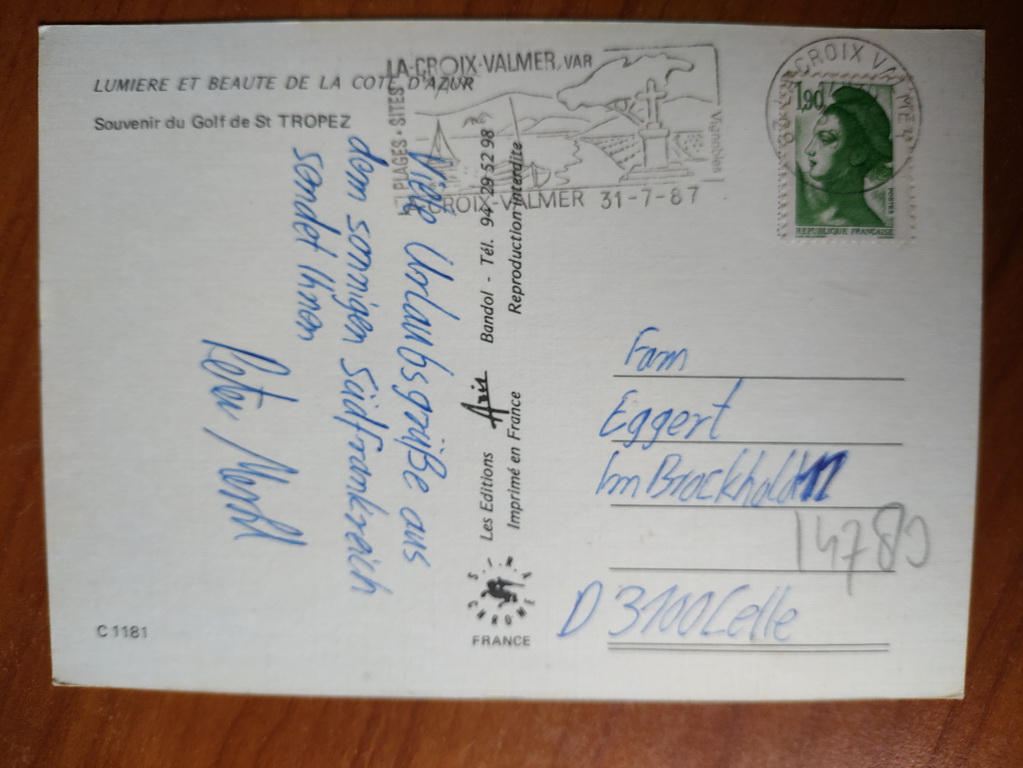 LUMIERE ET BEAUTE DE LA COTE D'AZUR
Souvenir du Golf de St TROPEZ
LA-CROIX-VALMER, VAR
PLAGES - SITES
Vignobles
CROIX-VALMER 31-7-87
CROIX VALMER
1,90
POSTES
REPUBLIQUE FRANCAISE
Viele Urlaubsgrüße aus
dem sonnigen Südfrankreich
sendet Ihnen
Peter
Les Editions Aris Bandol - Tél. 94 29 52 98
Imprimé en France Reproduction interdite
Fam
Eggert
Im Brockhold 11
14789
D 3100 Celle
SIRA CHROME
FRANCE
C 1181